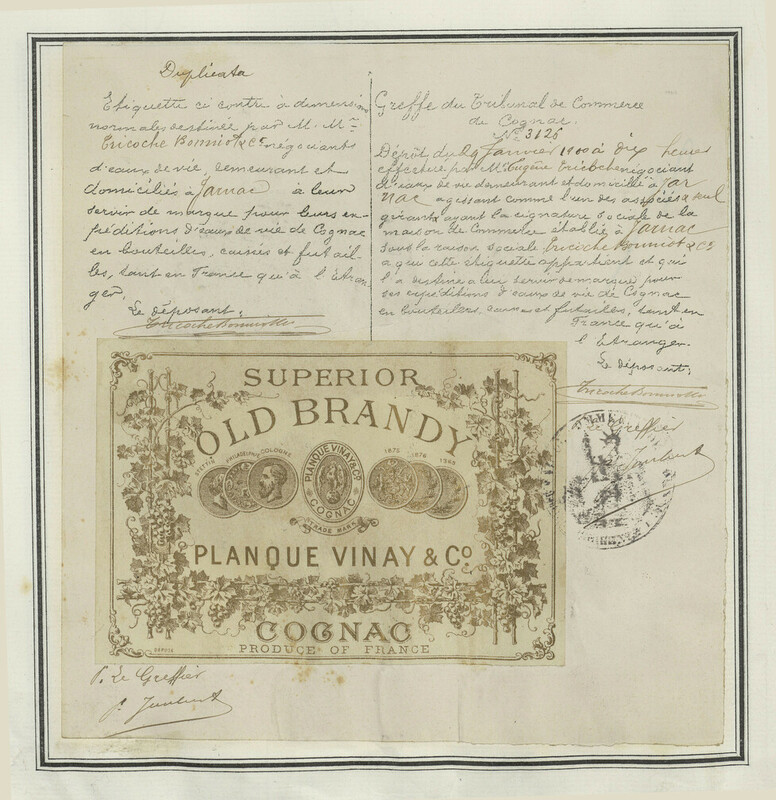 Duplicata
Etiquette ci contre à dimensions
normales destinée par M. Mrs
Tricoche Bonniot & Co négociants
d'eaux de vie, demeurant et
domiciliés à Jarnac à leur
servir de marque pour leurs ex-
péditions d'eaux de vie de Cognac
en bouteilles, caisses et futail-
les, tant en France qu'à l'étran-
ger.
Le déposant:
Tricoche Bonniot & Co
Greffe du Tribunal de Commerce
de Cognac.
No 3126
Dépôt du 29 Janvier 1900 à dix heures
effectué par Mr Eugène Tricoche négociant
d'eaux de vie demeurant et domicilié à Jar
nac agissant comme l'un des associés & seul
gérant ayant la signature sociale de la
maison de Commerce établie à Jarnac
sous la raison sociale Tricoche Bonniot & Co
à qui cette étiquette appartient et qui
l'a destinée à leur servir de marque pour
ses expéditions d'eaux de vie de Cognac
en bouteilles, caisses et futailles, tant en
France qu'à
l'Etranger.
Le déposant:
Tricoche Bonniot & Co
Le Greffier
Joubert
SUPERIOR
OLD BRANDY
PHILADELPHIA COLOGNE
PLANQUE VINAY & Co
COGNAC
TRADE MARK
1875 1876
PLANQUE VINAY & Co
COGNAC
DÉPOSÉ
PRODUCE OF FRANCE
P. Le Greffier
Joubert